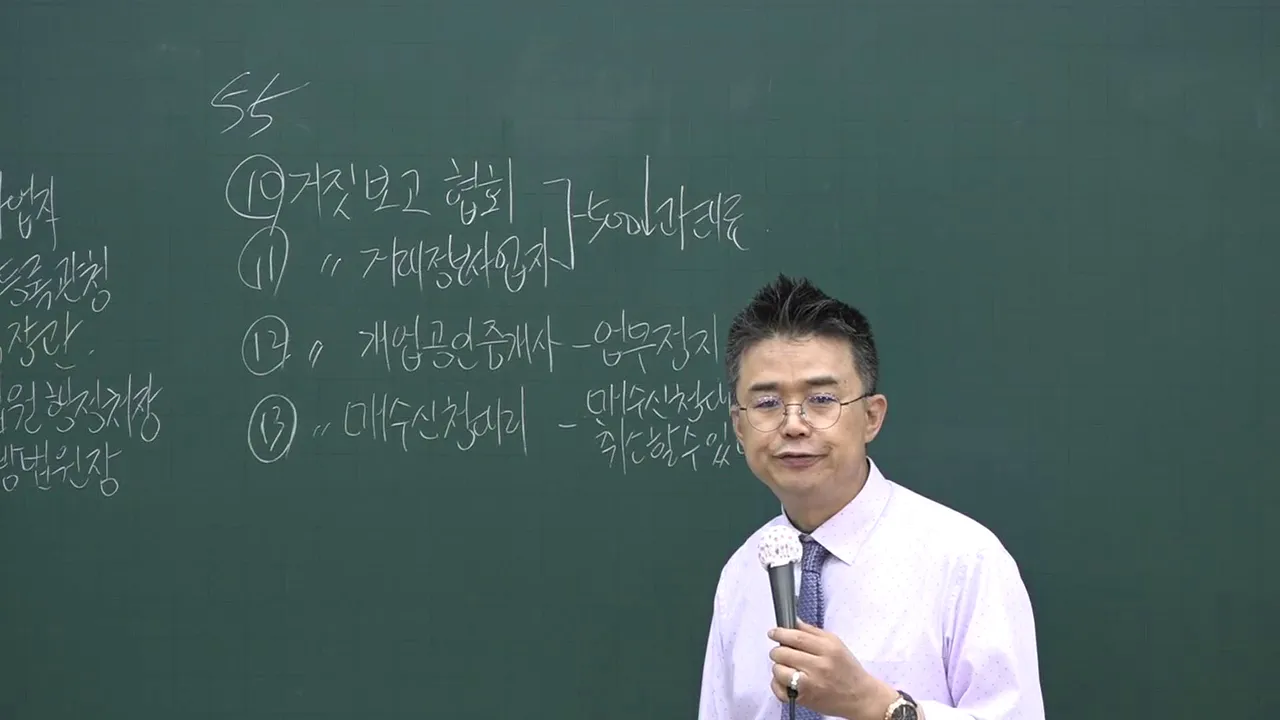 55
⑩ 거짓보고 협회 - 500↓ 과태료
⑪ 〃 거래정보사업자
⑫ 〃 개업공인중개사 - 업무정지
⑬ 〃 매수신청대리 - 매수신청대
취소할 수 있
사업자
등록관청
장관
법원행정처장
방법원장